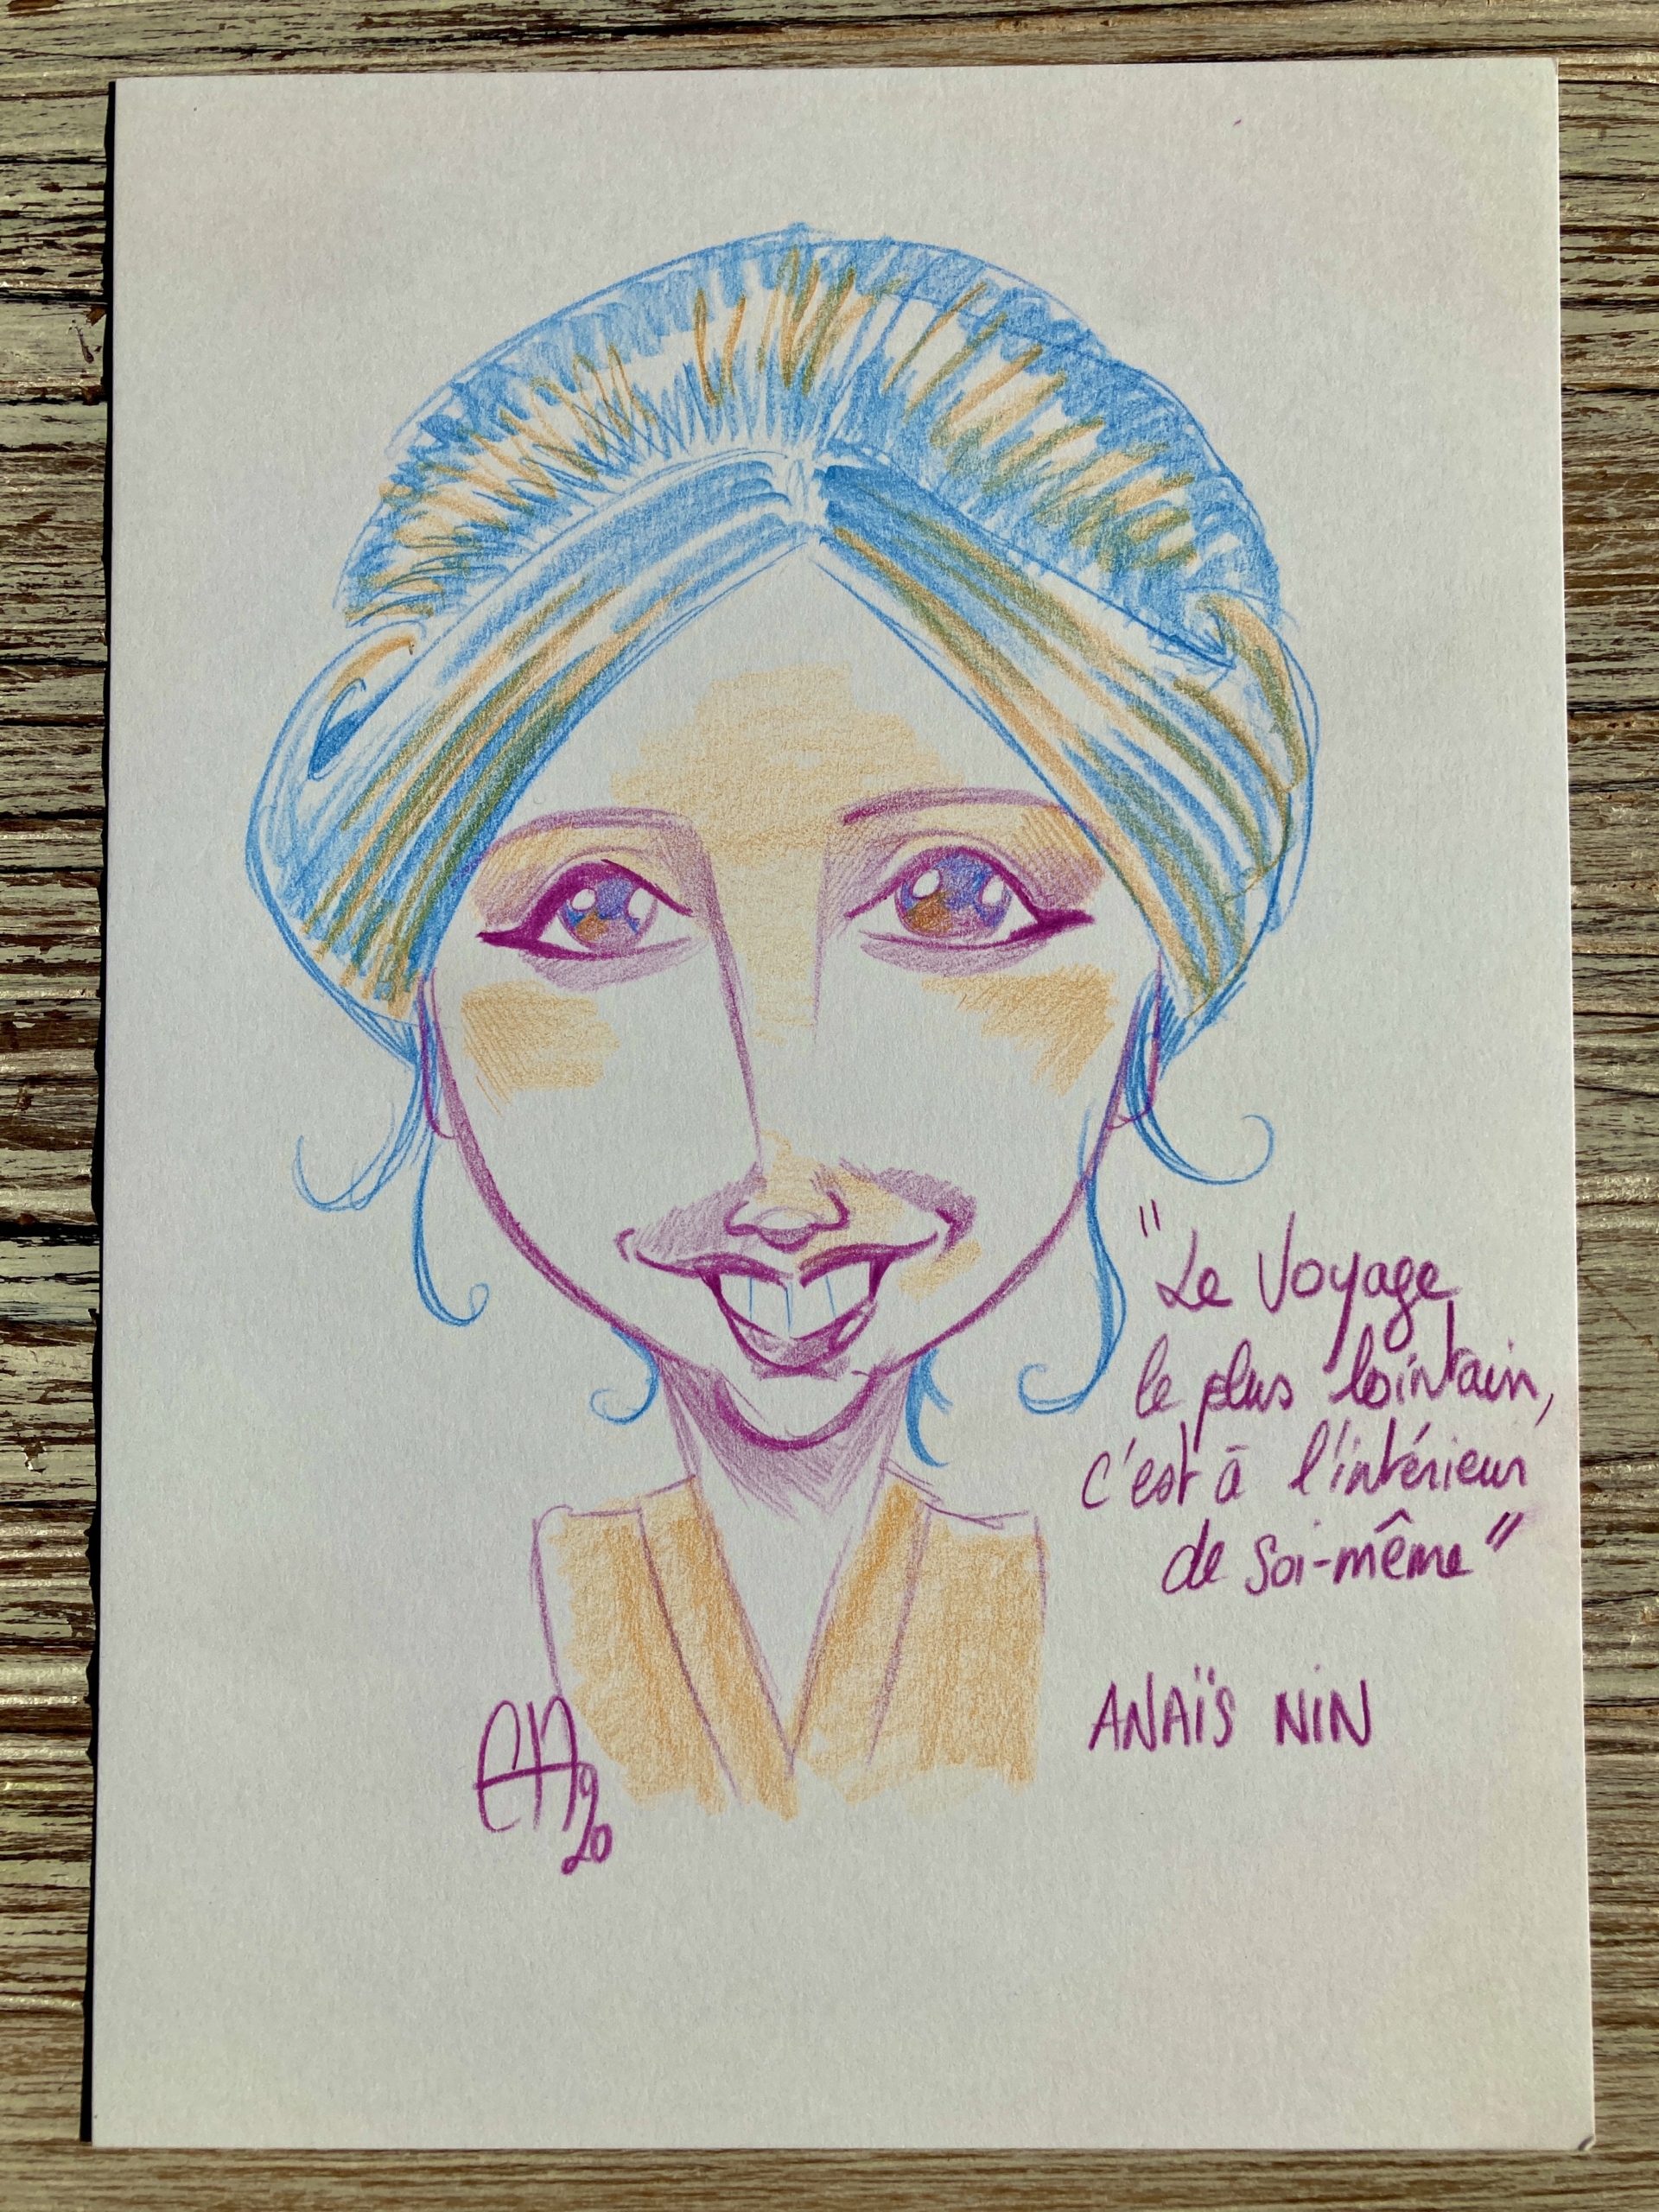 "Le Voyage
le plus lointain,
c'est à l'intérieur
de soi-même"
ANAÏS NIN
20